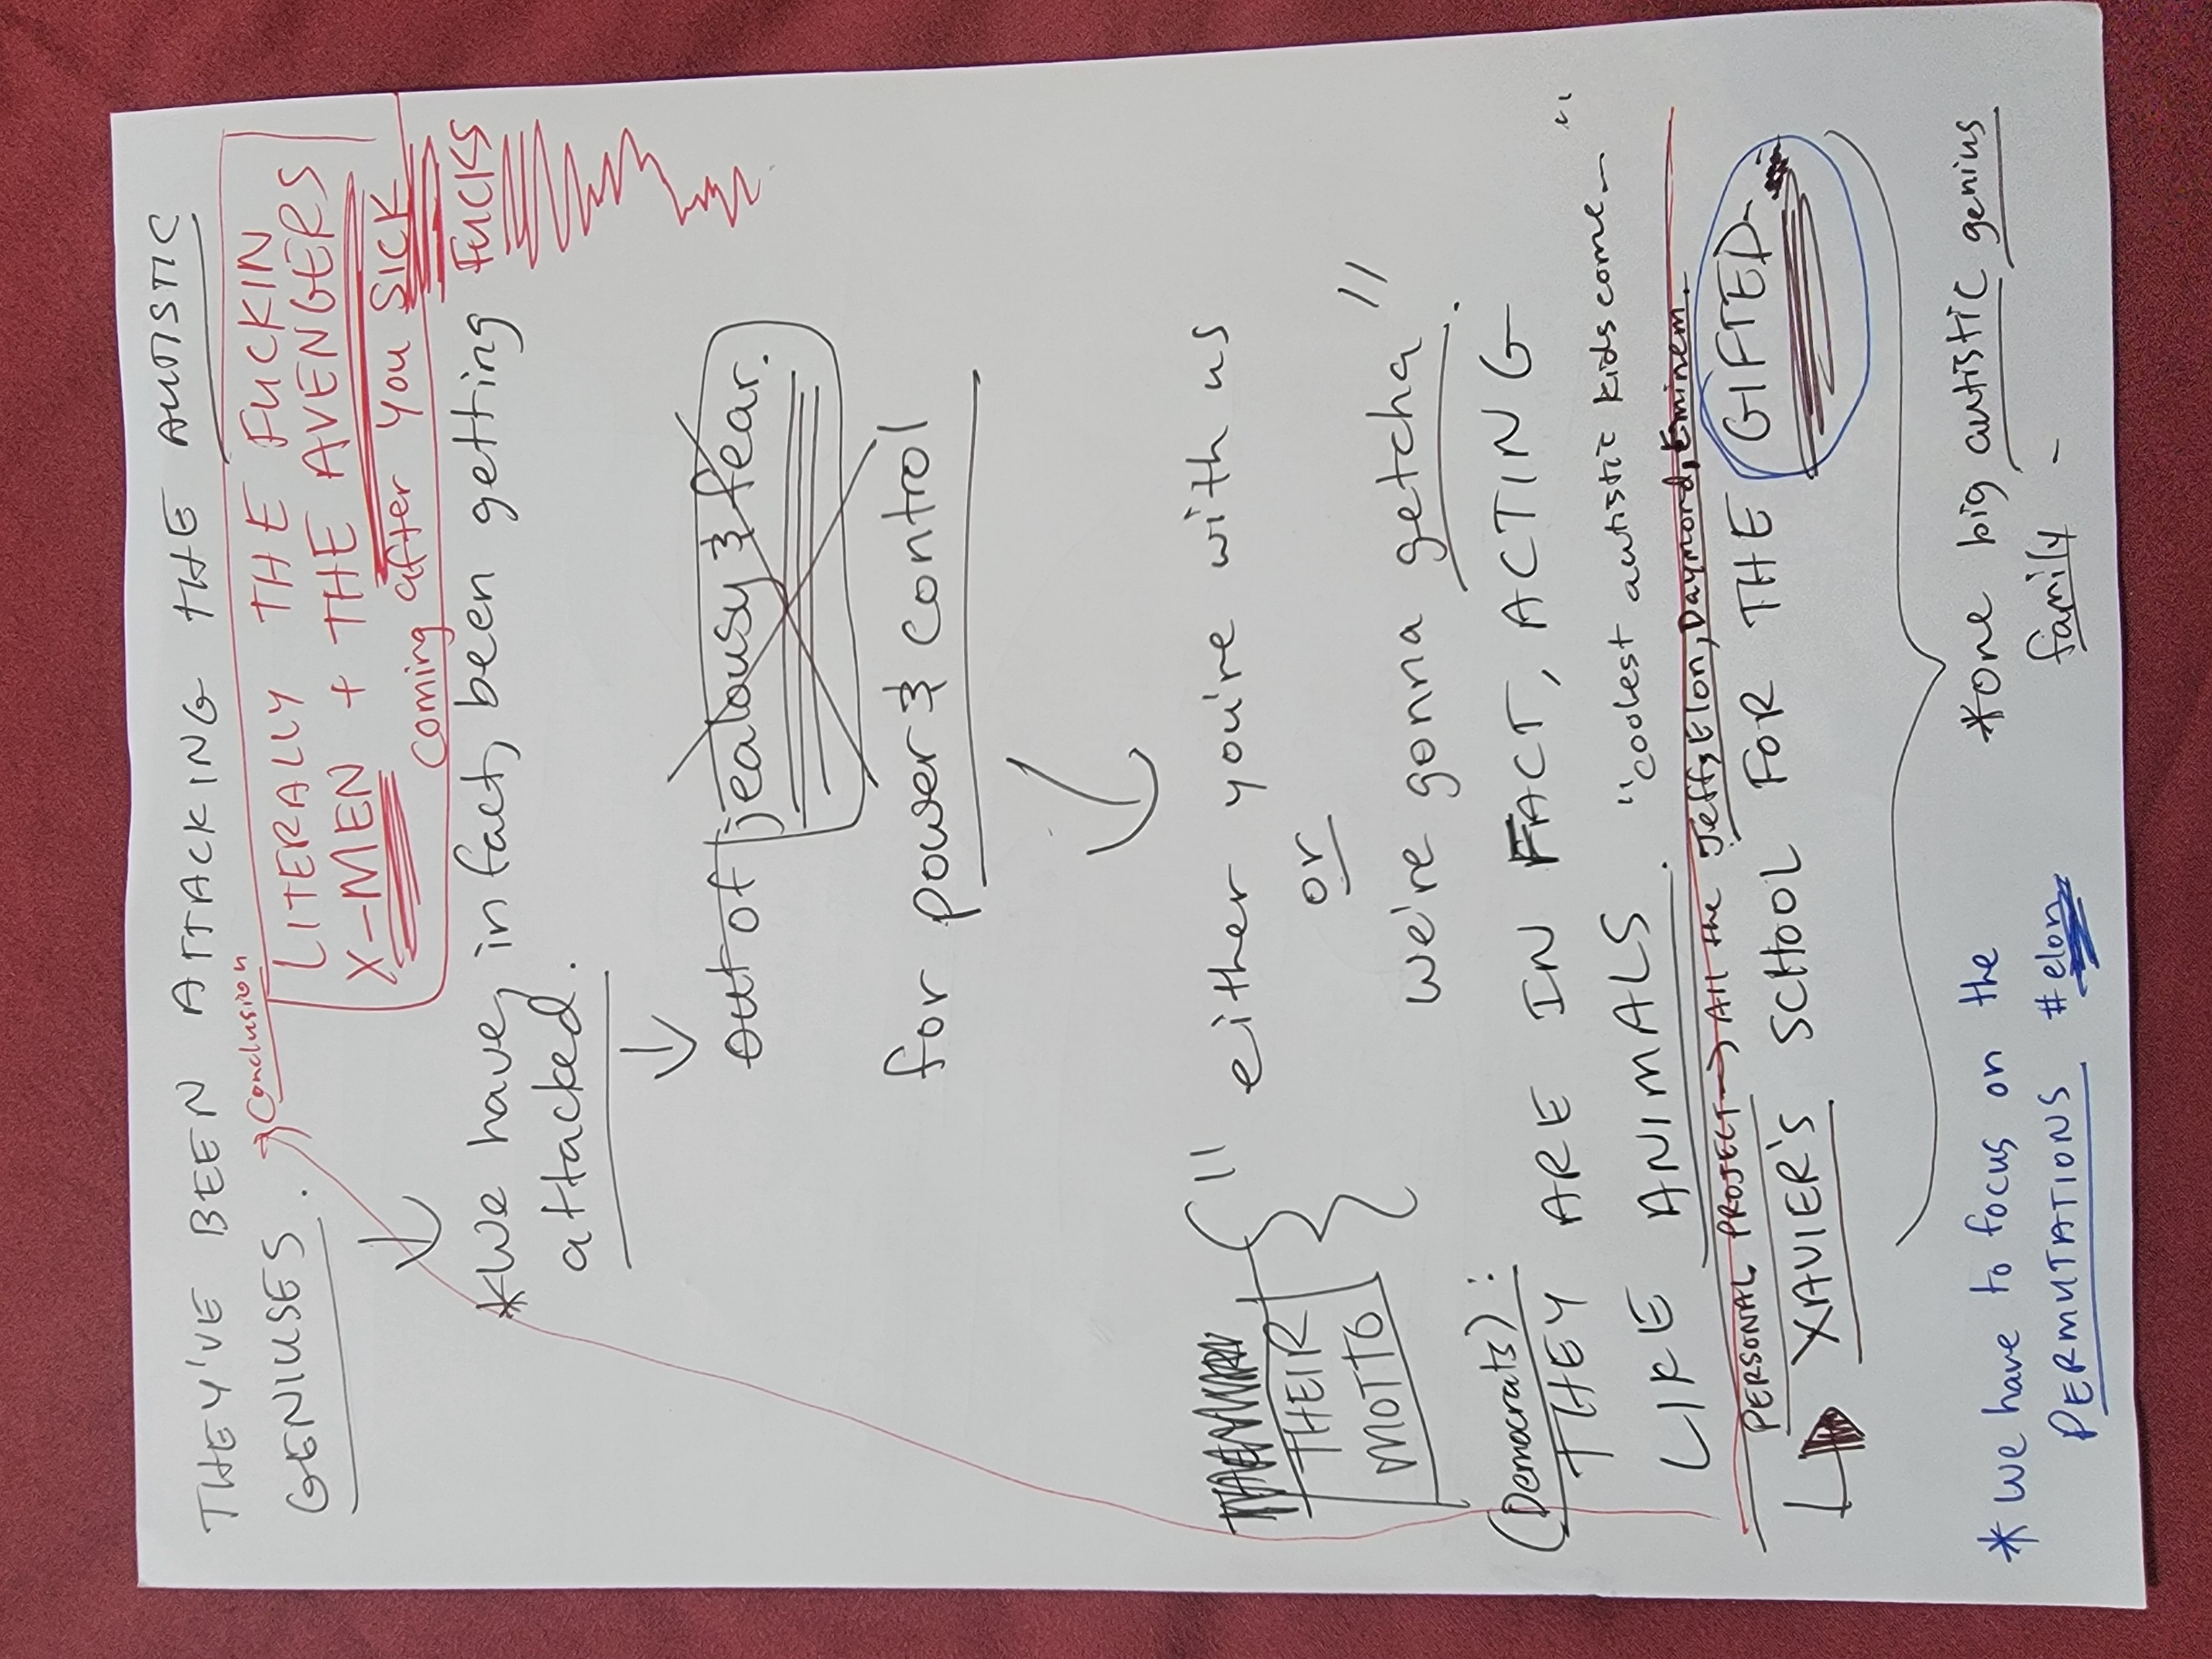 THEY'VE BEEN ATTACKING THE AUTISTIC
GENIUSES.
Conclusion
LITERALLY THE FUCKIN
X-MEN + THE AVENGERS
coming after you SICK
FUCKS
*We have, in fact, been getting
attacked.
out of jealousy & fear.
for power & control
THEIR
MOTTO
" either you're with us
or
we're gonna getcha".
(Democrats):
THEY ARE IN FACT, ACTING
LIKE ANIMALS.
"coolest autistic kids come—"
PERSONAL PROJECT → All the Jeffs, Elon, Daymond, Eminem.
XAVIER'S SCHOOL FOR THE GIFTED-
* we have to focus on the
PERMUTATIONS #elon
*one big autistic genius
family -